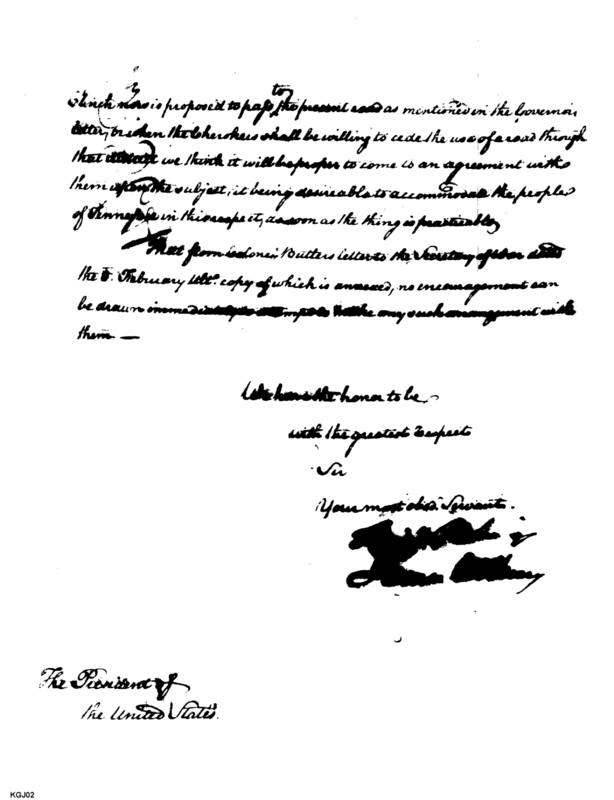 to
which now is proposed to pass the present road as mentioned in the Governors
letter, or when the Cherokees shall be willing to cede the use of a road through
that we think it will be proper to come to an agreement with
them upon the subject, it being desireable to accommodate the people
of Tennessee in this respect, as soon as the thing is practicable
That from Colonel Butlers letter to the Secretary of War dated
the February Ult. copy of which is annexed, no encouragement can
be drawn immediately to attempt to make any such arrangement with
them —
We have the honor to be
with the greatest respect
Sir
Your most obd. Servants.
The President of
the United States.
KGJ02